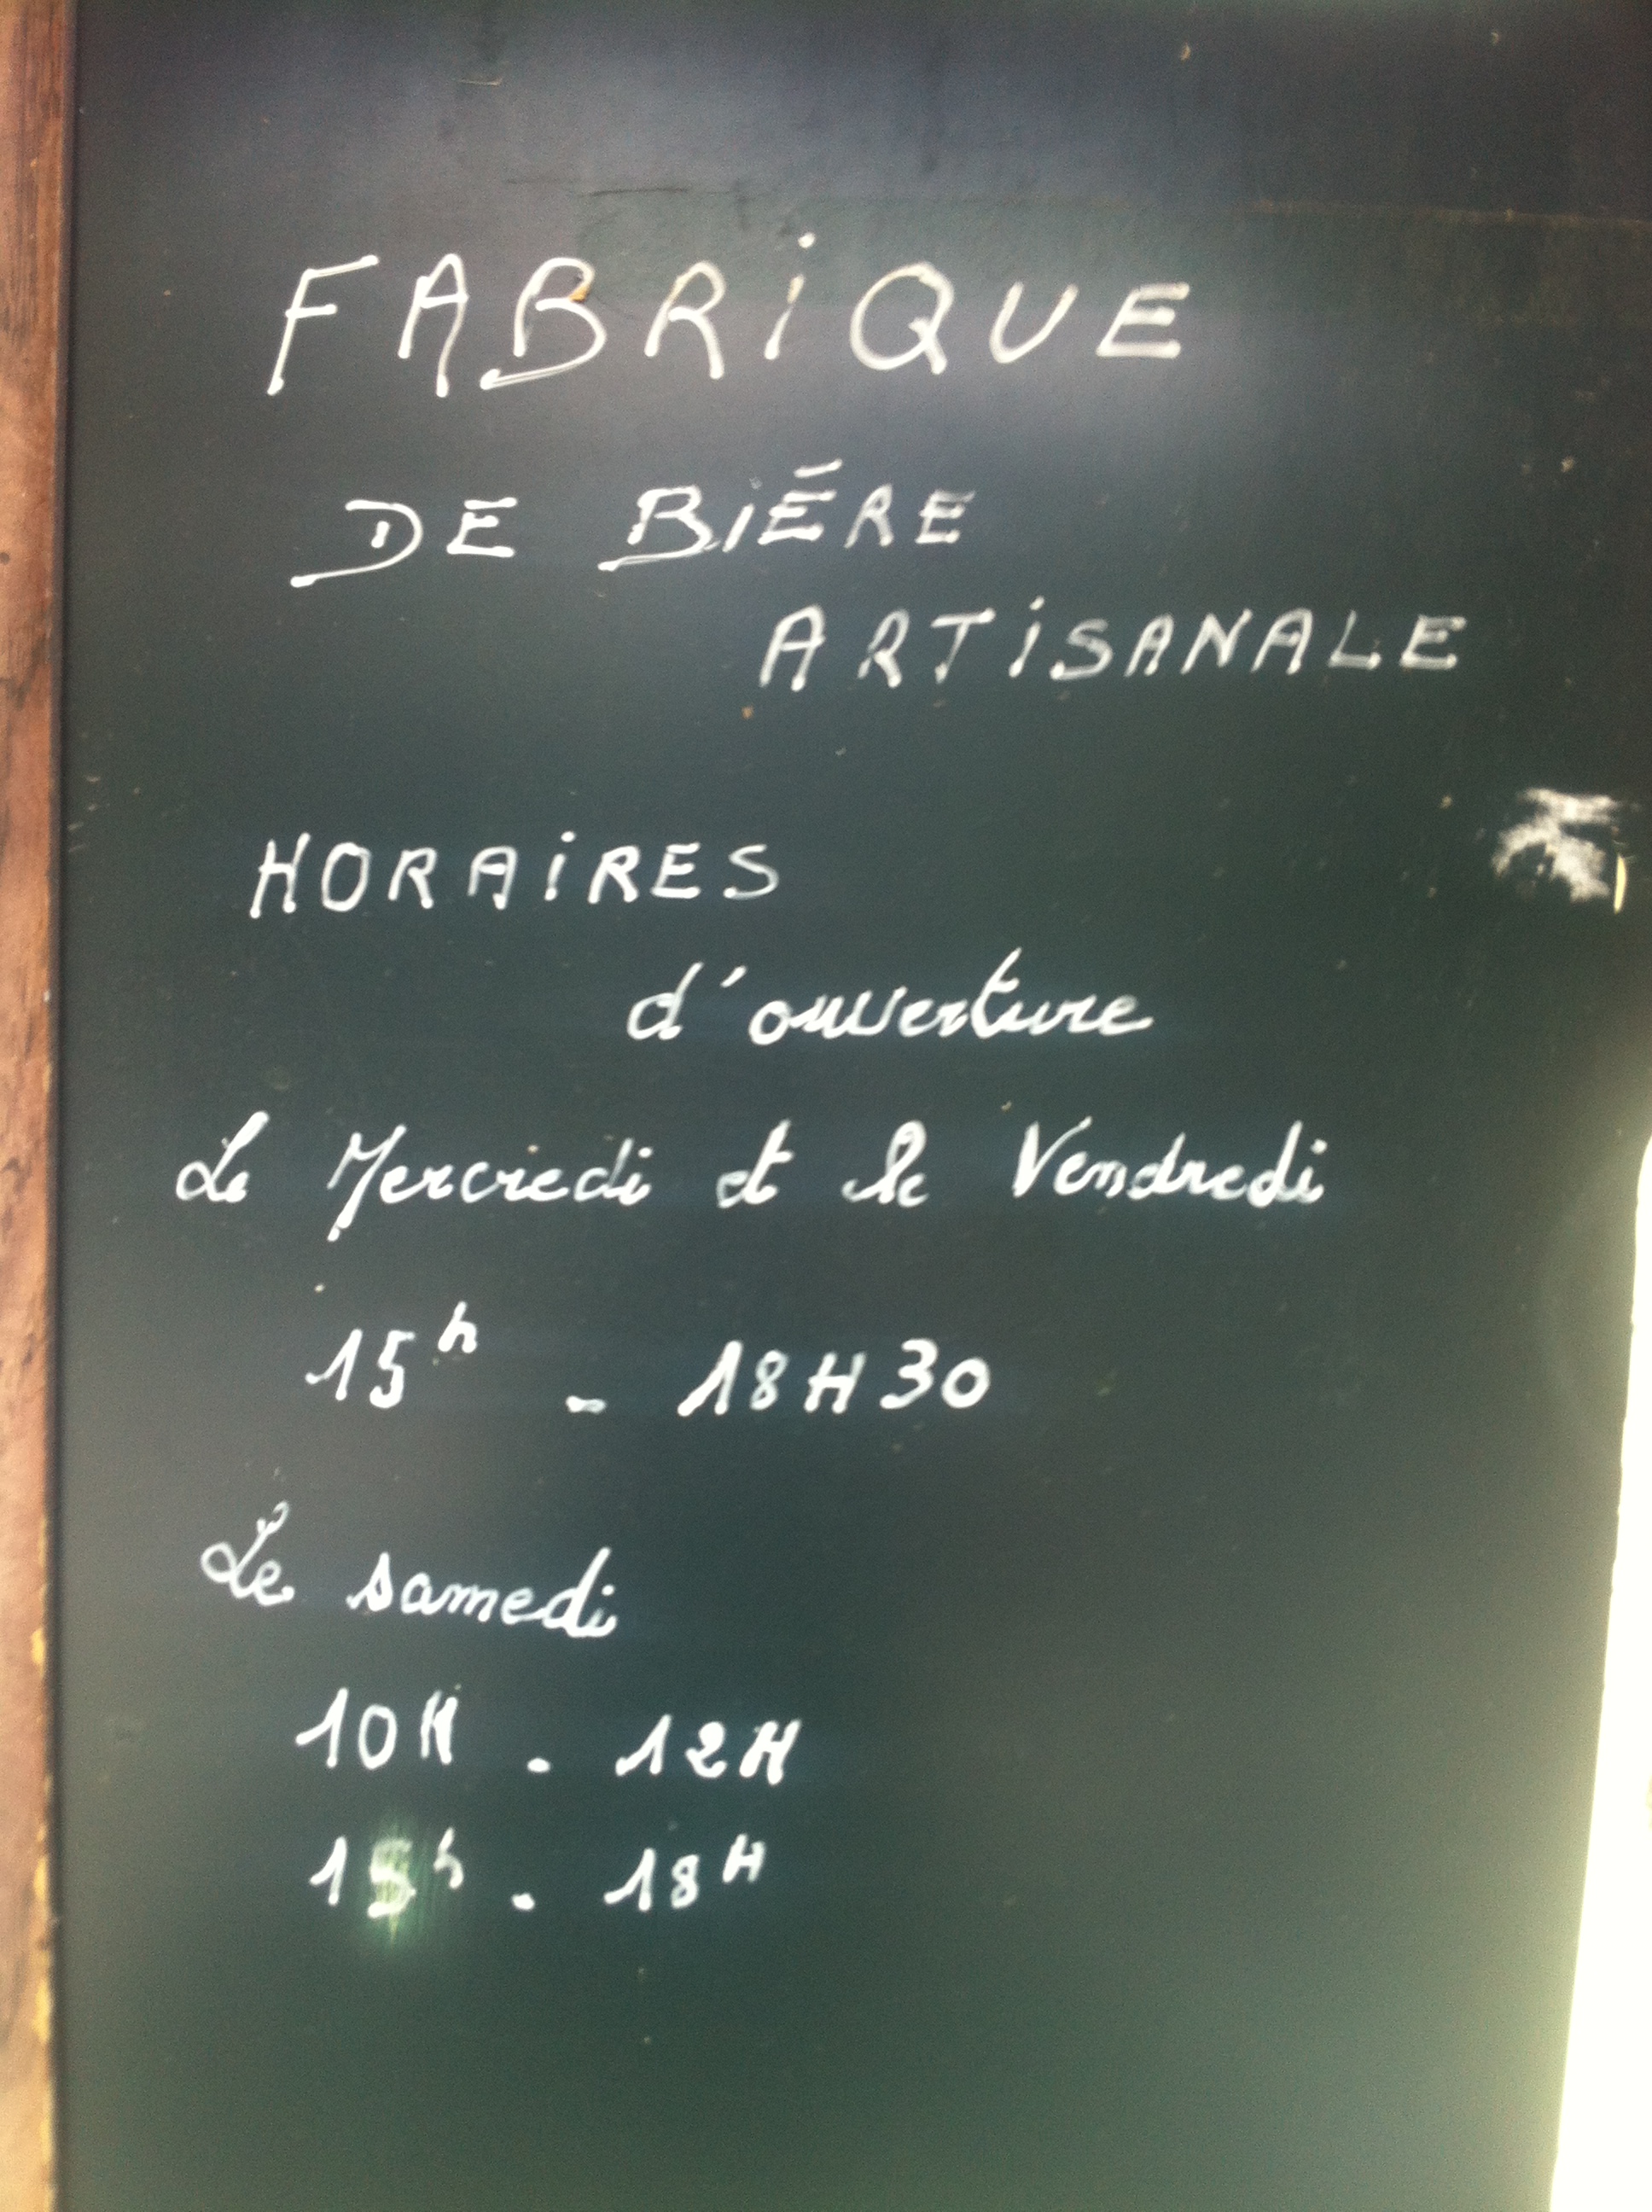 FABRiQUE
DE BiÉRE
ARTiSANALE
HORAiRES
d'ouverture
Le Mercredi et le Vendredi
15h - 18H30
Le samedi
10H - 12H
15h - 18H